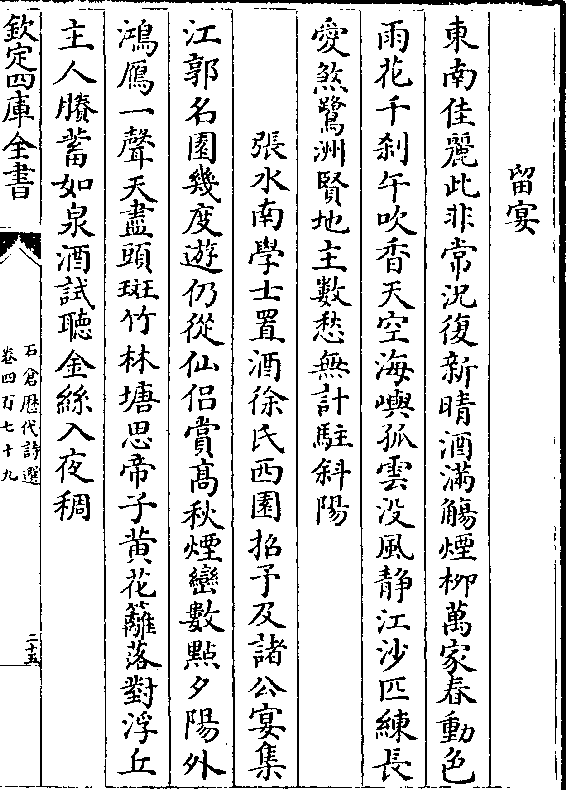 留宴
東南佳麗此非常況復新晴酒滿觴煙柳萬家春動色
雨花千刹午吹香天空海嶼孤雲没風静江沙匹練長
愛煞鷺洲賢地主數愁無計駐斜陽
張水南學士置酒徐氏西園招予及諸公宴集
江郭名園幾度遊仍從仙侣賞髙秋煙巒數點夕陽外
鴻鴈一聲天盡頭斑竹林塘思帝子黄花籬落對浮丘
主人賸蓄如泉酒試聽金絲入夜稠
欽定四庫全書
石倉歴代詩選
卷四百七十九
二十五